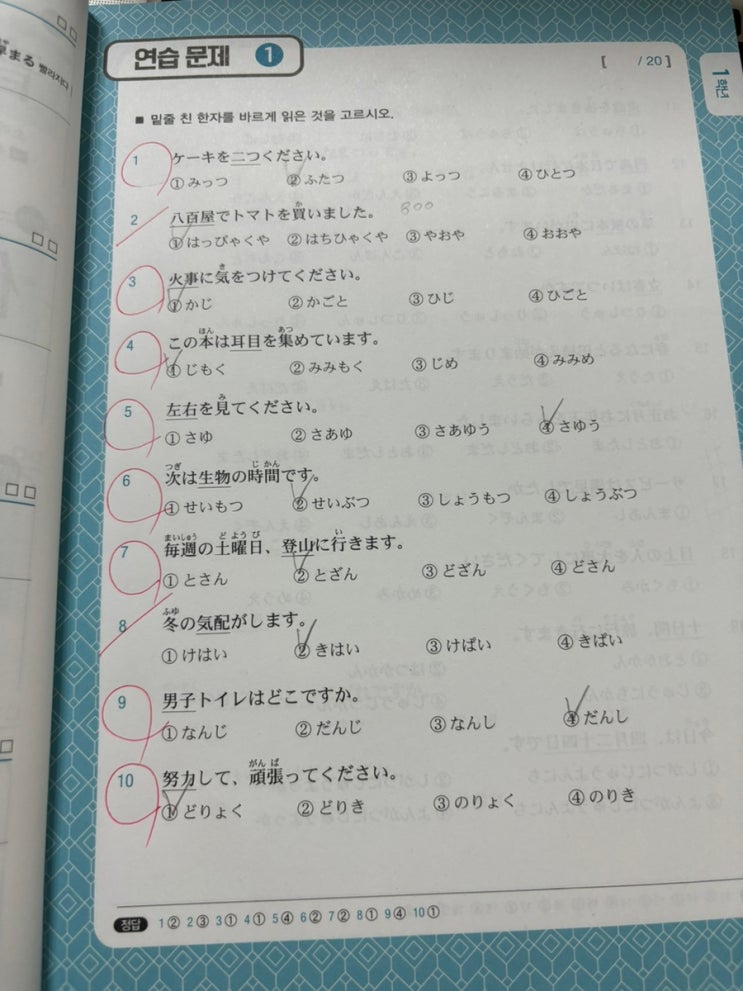 まる 빨라지다
연습 문제 1
[ / 20 ]
1학년
■ 밑줄 친 한자를 바르게 읽은 것을 고르시오.
1 ケーキを二つください。
① みっつ ② ふたつ ③ よっつ ④ ひとつ
2 八百屋でトマトを買いました。 800
① はっぴゃくや ② はちひゃくや ③ やおや ④ おおや
き
3 火事に気をつけてください。
① かじ ② かごと ③ ひじ ④ ひごと
ほん あつ
4 この本は耳目を集めています。
① じもく ② みみもく ③ じめ ④ みみめ
み
5 左右を見てください。
① さゆ ② さあゆ ③ さあゆう ④ さゆう
つぎ じ かん
6 次は生物の時間です。
① せいもつ ② せいぶつ ③ しょうもつ ④ しょうぶつ
まいしゅう ど よう び い
7 毎週の土曜日、登山に行きます。
① とさん ② とざん ③ どざん ④ どさん
ふゆ
8 冬の気配がします。
① けはい ② きはい ③ けばい ④ きばい
9 男子トイレはどこですか。
① なんじ ② だんじ ③ なんし ④ だんし
がん ば
10 努力して、頑張ってください。
① どりょく ② どりき ③ のりょく ④ のりき
정답 1② 2③ 3① 4① 5④ 6② 7② 8① 9④ 10①